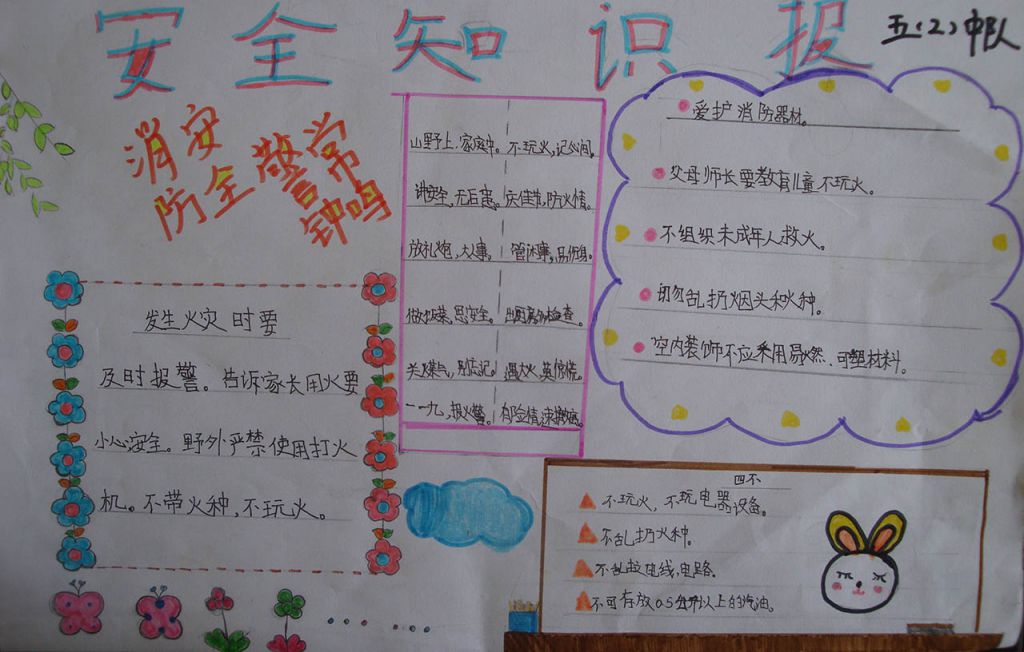 安全知识报
五(2)中队
消防安全警钟常鸣
发生火灾时要
及时报警。告诉家长用火要
小心安全。野外严禁使用打火
机。不带火种,不玩火。
山野上,家庭中。不玩火,记心间。
讲安全,无后患。庆佳节,防火情。
放礼炮,
做饭菜,思安全。出园离外检查。
关煤气,别忘记。遇大火,莫惊慌。
一一九,报火警。有险情,速撤离。
爱护消防器材。
父母师长要教育儿童不玩火。
不组织未成年人救火。
切勿乱扔烟头和火种。
室内装饰不应采用易燃、可塑材料。
四不
不玩火,不玩电器设备。
不乱扔火种。
不乱拉电线,电路。
不可存放0.5公升以上的汽油。